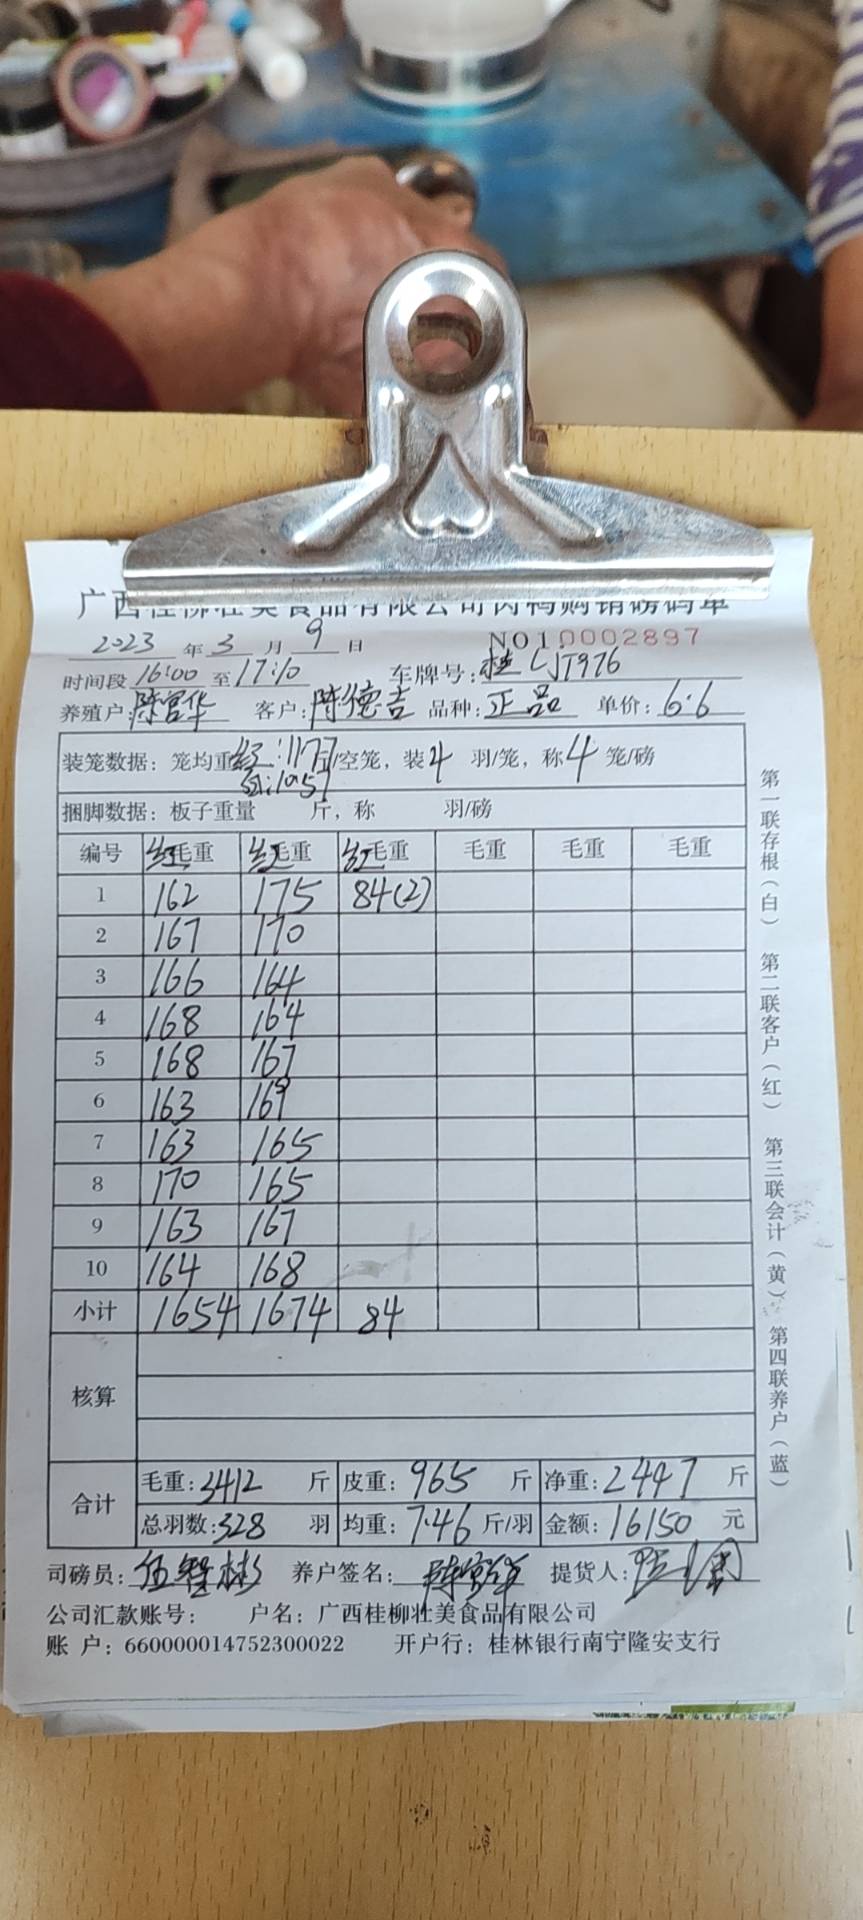 广西桂柳壮美食品有限公司肉鸭购销磅码单
2023 年 3 月 9 日 NO10002897
时间段 16:00 至 17:10 车牌号: 桂CJT976
养殖户: 陈官华 客户: 陈德吉 品种: 正品 单价: 6.6
装笼数据: 笼均重 :11.77 斤/空笼, 装 4 羽/笼, 称 4 笼/磅
红:10.57
捆脚数据: 板子重量 斤, 称 羽/磅
编号 红毛重 红毛重 红毛重 毛重 毛重 毛重
1 162 175 84(2)
2 167 170
3 166 164
4 168 164
5 168 167
6 163 169
7 163 165
8 170 165
9 163 167
10 164 168
小计 1654 1674 84
核算
合计 毛重: 3412 斤 皮重: 965 斤 净重: 2447 斤
总羽数: 328 羽 均重: 7.46 斤/羽 金额: 16150 元
司磅员: 养户签名: 陈官华 提货人:
公司汇款账号: 户名: 广西桂柳壮美食品有限公司
账 户: 660000014752300022 开户行: 桂林银行南宁隆安支行
第一联存根(白) 第二联客户(红) 第三联会计(黄) 第四联养户(蓝)